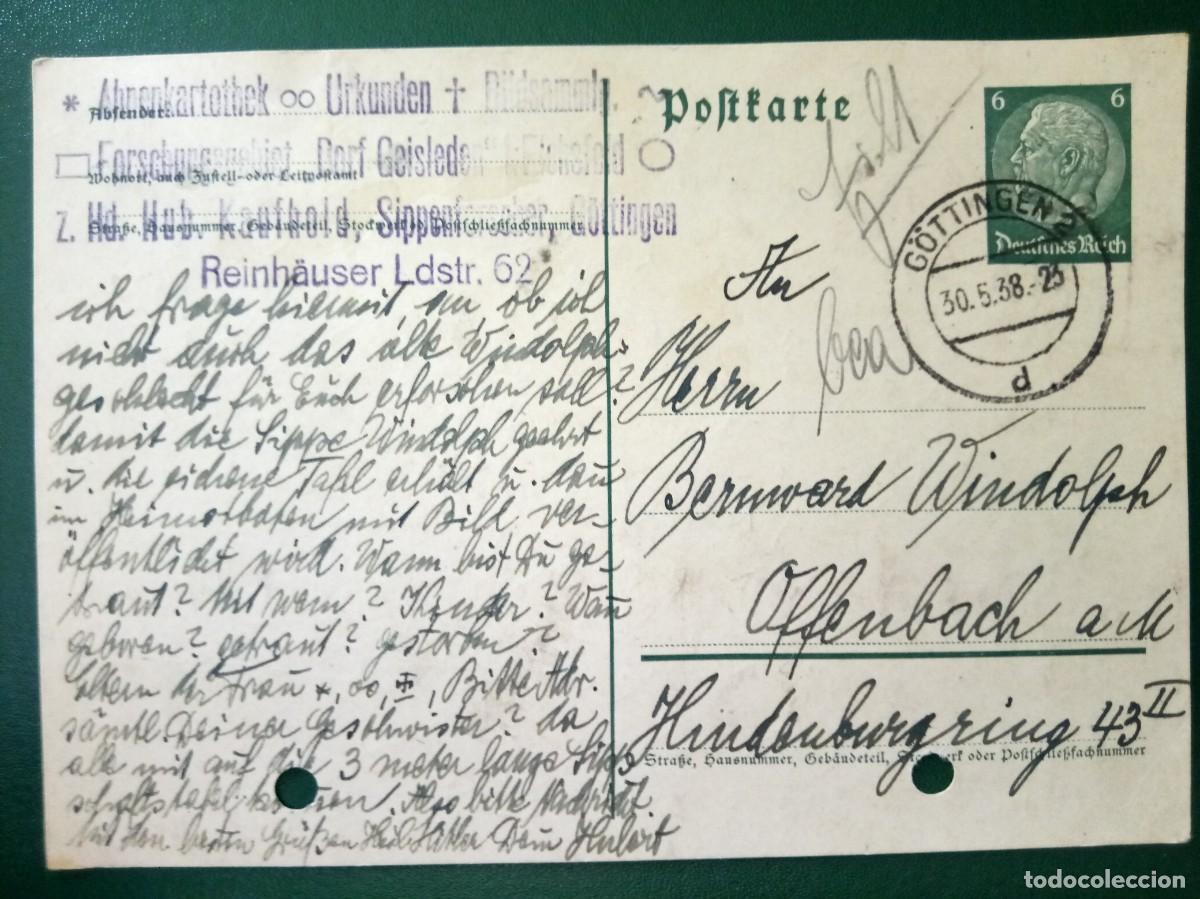 * Ahnenkartothek oo Urkunden + Bildsammlg.
Absender:
Forschungsgebiet „Dorf Geisleden" i. Eichsfeld
Wohnort, auch Zustell- oder Leitpostamt
z. Hd. Hub. Kaufhold, Sippenforscher, Göttingen
Straße, Hausnummer, Gebäudeteil, Stockwerk od. Postschließfachnummer
Reinhäuser Ldstr. 62
ich frage hiermit an, ob ich
nicht durch das alte Windolph-
geschlecht für Euch erforschen soll?
damit die Sippe Windolph geehrt
u. die eichene Tafel erhält u. dann
im Heimatboten mit Bild ver-
öffentlicht wird. Wann bist Du ge-
traut? Mit wem? Kinder? Wann
geboren? getraut? gestorben?
Eltern der Frau *, oo, +, Bitte Adr.
sämtl. Deiner Geschwister? da
alle mit auf die 3 meter lange Sipp-
schaftstafel kommen. Also bitte Nachricht.
Mit den besten Grüßen Heil Hitler Dein Hubert
Postkarte
6 6
Deutsches Reich
GÖTTINGEN 2
30.5.38.-23
d
An
Herrn
Bernward Windolph
Offenbach a M
Hindenburgring 43 II
Straße, Hausnummer, Gebäudeteil, Stockwerk oder Postschließfachnummer
todocoleccion